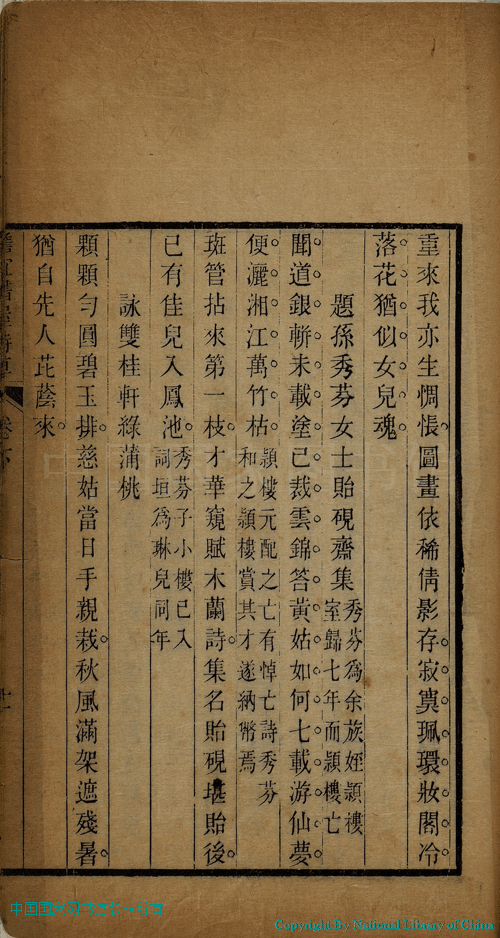 重來我亦生惆悵圖畫依稀倩影存寂寞珮環妝閣冷
落花猶似女兒魂
題孫秀芬女士貽硯齋集秀芬為余族姪穎樓室歸七年而穎樓亡
聞道銀軿未載塗已裁雲錦答黃姑如何七載游仙夢
便灑湘江萬竹枯穎樓元配之亡有悼亡詩秀芬和之穎樓賞其才遂納幣焉
斑管拈來第一枝才華窺賦木蘭詩集名貽硯堪貽後
已有佳兒入鳳池秀芬子小樓已入詞垣為琳兒同年
詠雙桂軒綠蒲桃
顆顆勻圓碧玉排慈姑當日手親栽秋風滿架遮殘暑
猶自先人芘蔭來
Copyright By National Library of China